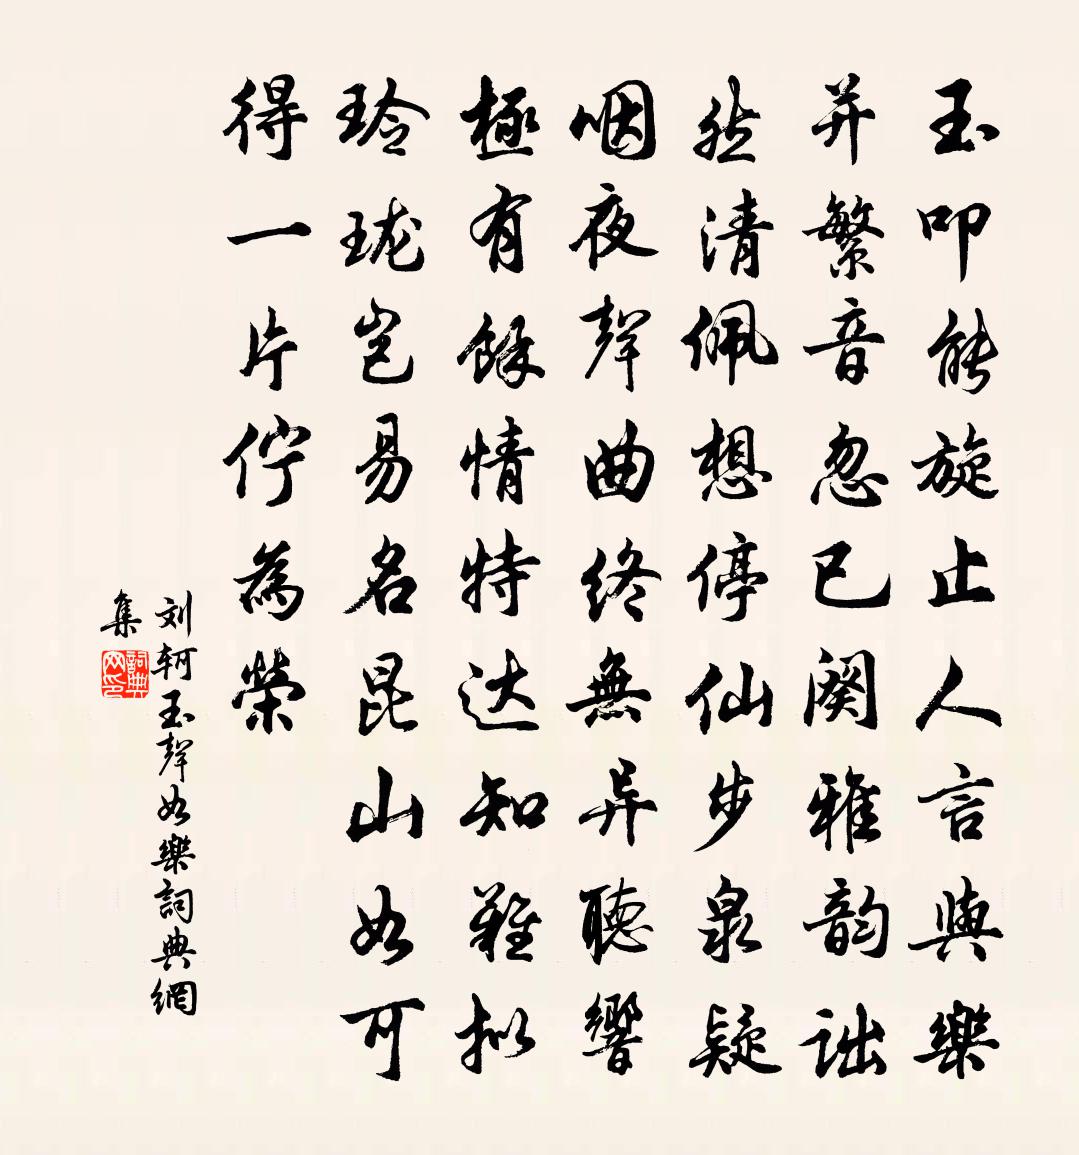 玉叩能旋止人言與樂
并繁音忽已闋雅韵詘
然清佩想停仙步泉疑
咽夜聲曲終無异聽響
極有餘情特达知難擬
玲瓏豈易名昆山如可
得一片佇為榮
刘軻玉聲如樂詞典網
集
詞典网印